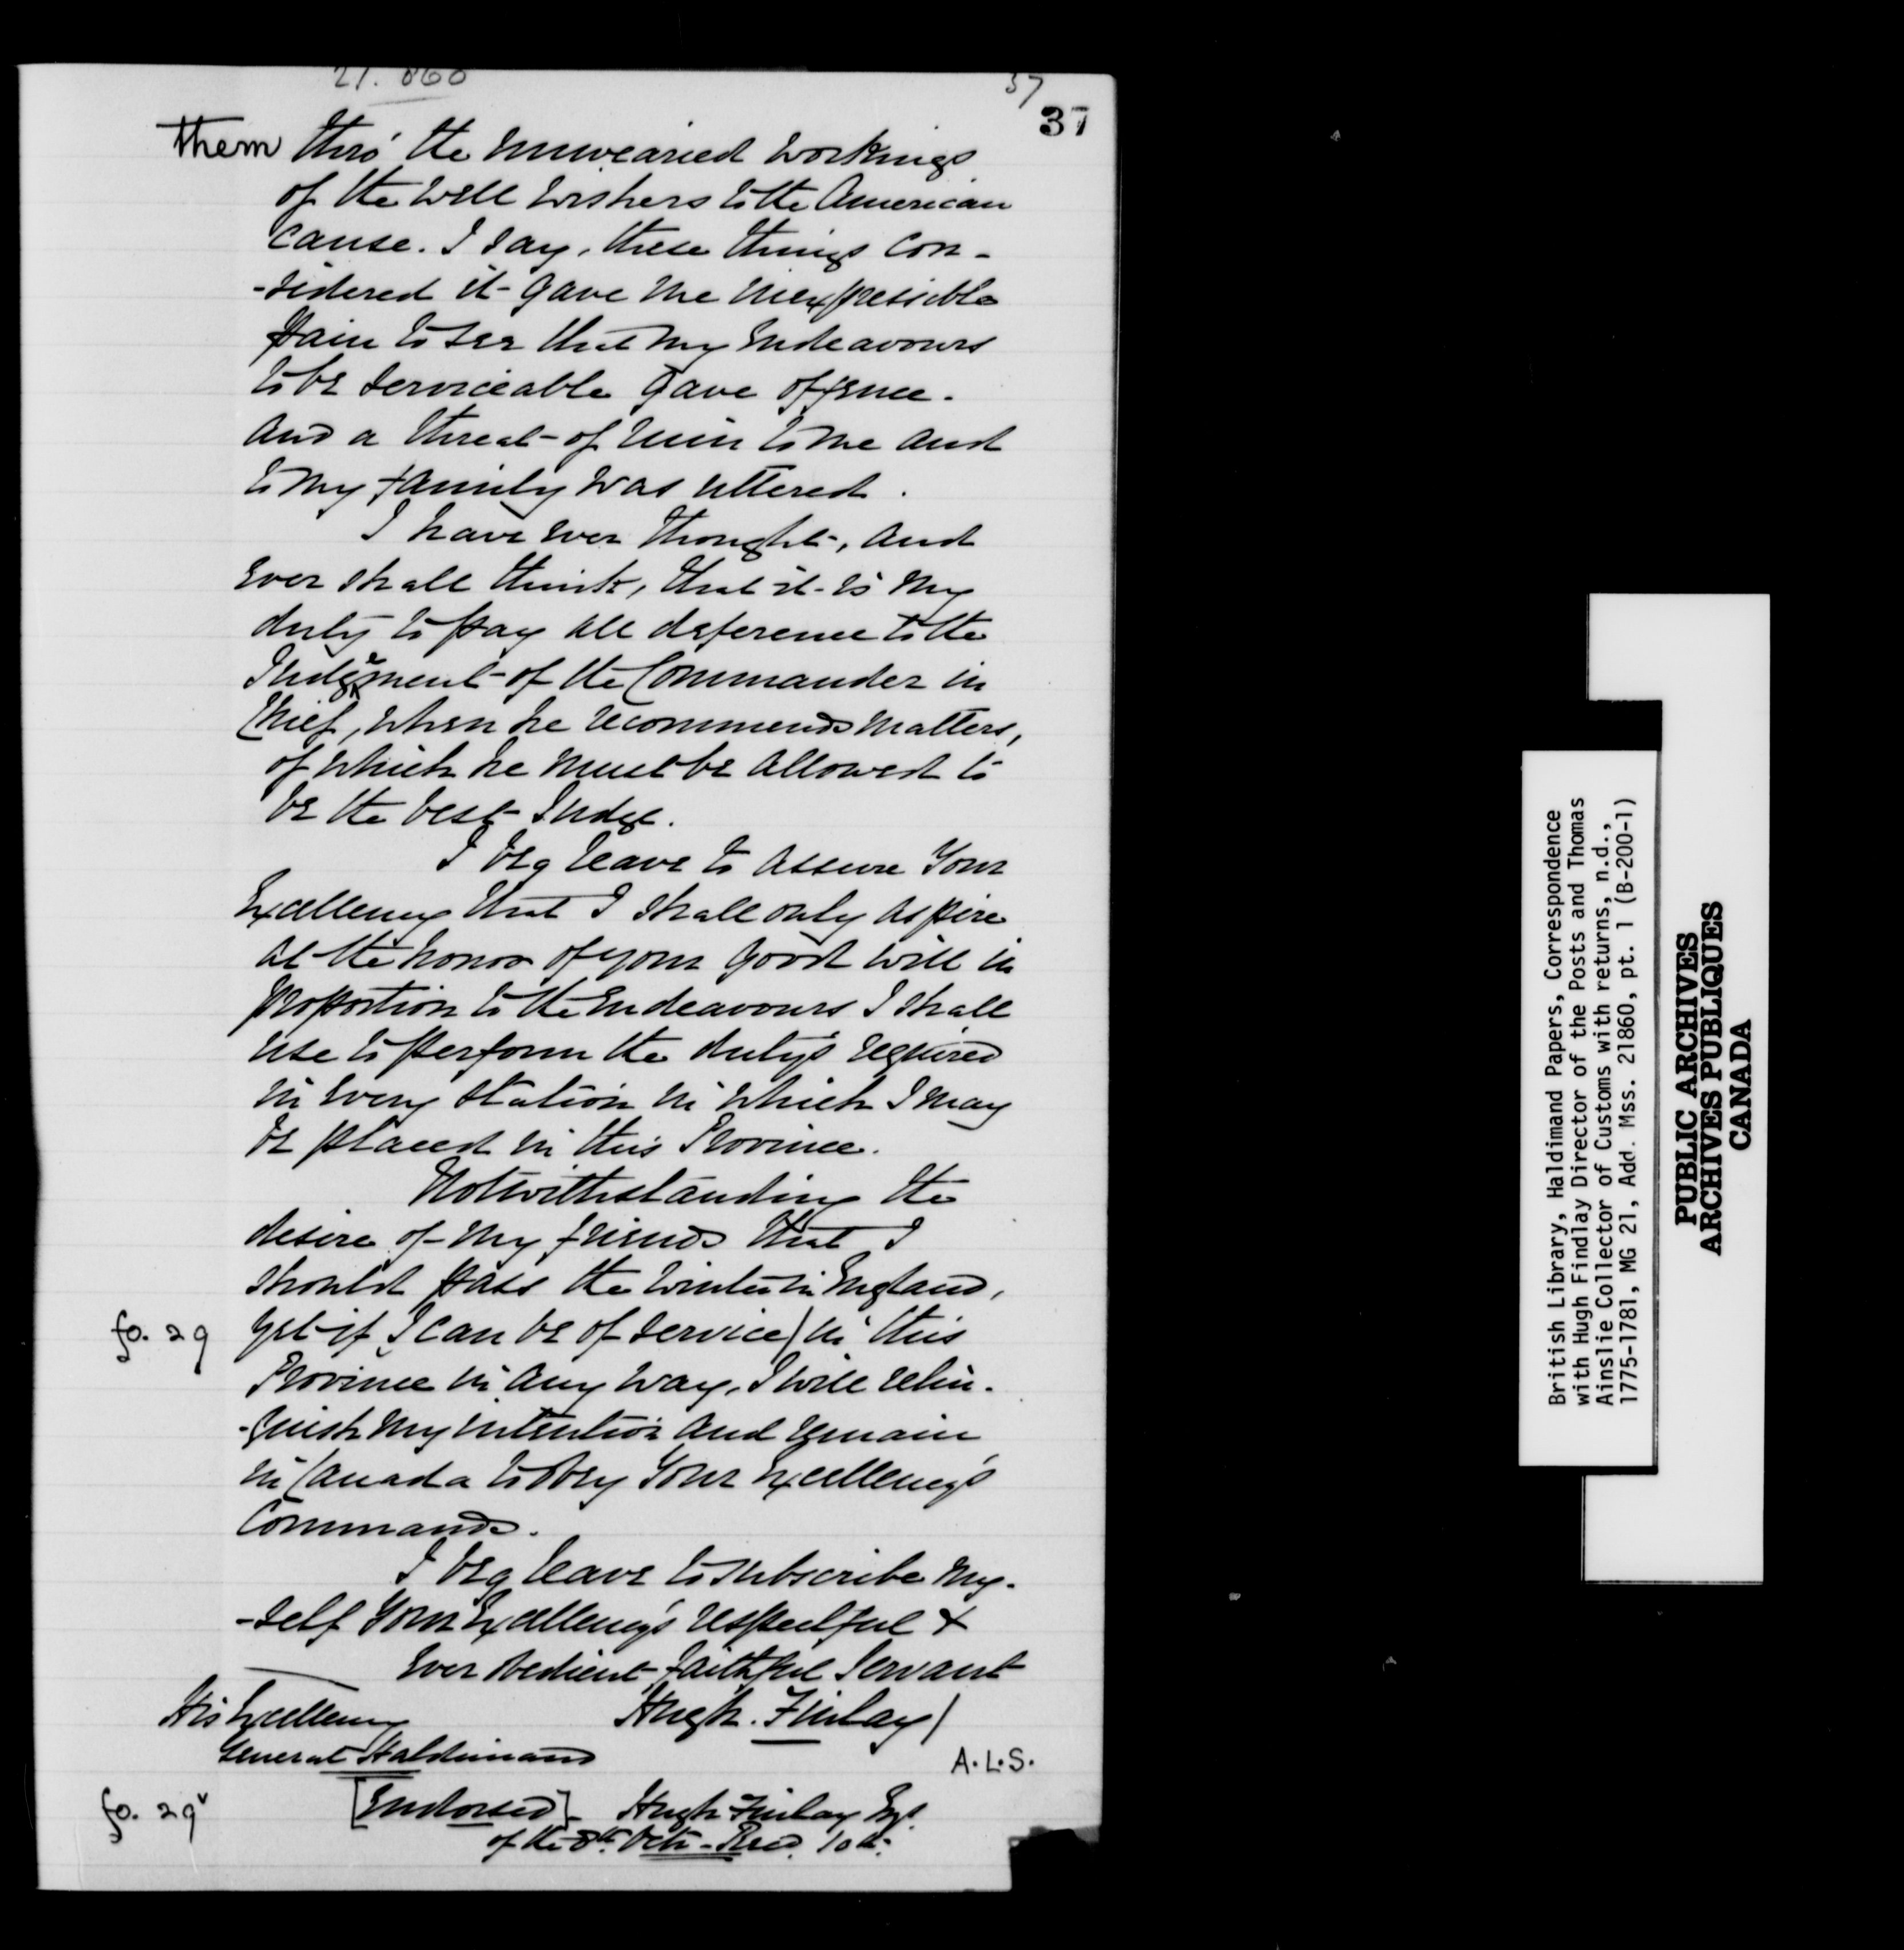 21.860
37
37
them thro' the unwearied workings
of the well wishers to the American
cause. I say, these things con-
-sidered it gave me inexpressible
pain to see that my Endeavours
to be serviceable gave offence.
and a threat of ruin to me and
to my family was uttered.
I have ever thought, and
ever shall think, that it is my
duty to pay all deference to the
Judgement of the Commander in
Chief, when he recommends matters,
of which he must be allowed to
be the best Judge.
I beg leave to assure Your
Excellency that I shall only aspire
at the honor of your good will in
proportion to the Endeavours I shall
use to perform the duty's required
in every station in which I may
be placed in this Province.
Notwithstanding the
desire of my friends that I
should pass the winter in England,
fo. 29
yet if I can be of service / in this
Province in any way, I will relin-
-quish my intention and remain
in Canada to obey Your Excellency's
Commands.
I beg leave to subscribe my-
-self Your Excellency's respectful &
ever obedient faithful Servant
Hugh. Finlay /
His Excellency
General Haldimand
A.L.S.
fo. 29v
[Endorsed] - Hugh Finlay Esqr.
of the 8th. Octr. - Recd. 10th.
British Library, Haldimand Papers, Correspondence
with Hugh Findlay Director of the Posts and Thomas
Ainslie Collector of Customs with returns, n.d.,
1775-1781, MG 21, Add. Mss. 21860, pt. 1 (B-200-1)
PUBLIC ARCHIVES
ARCHIVES PUBLIQUES
CANADA